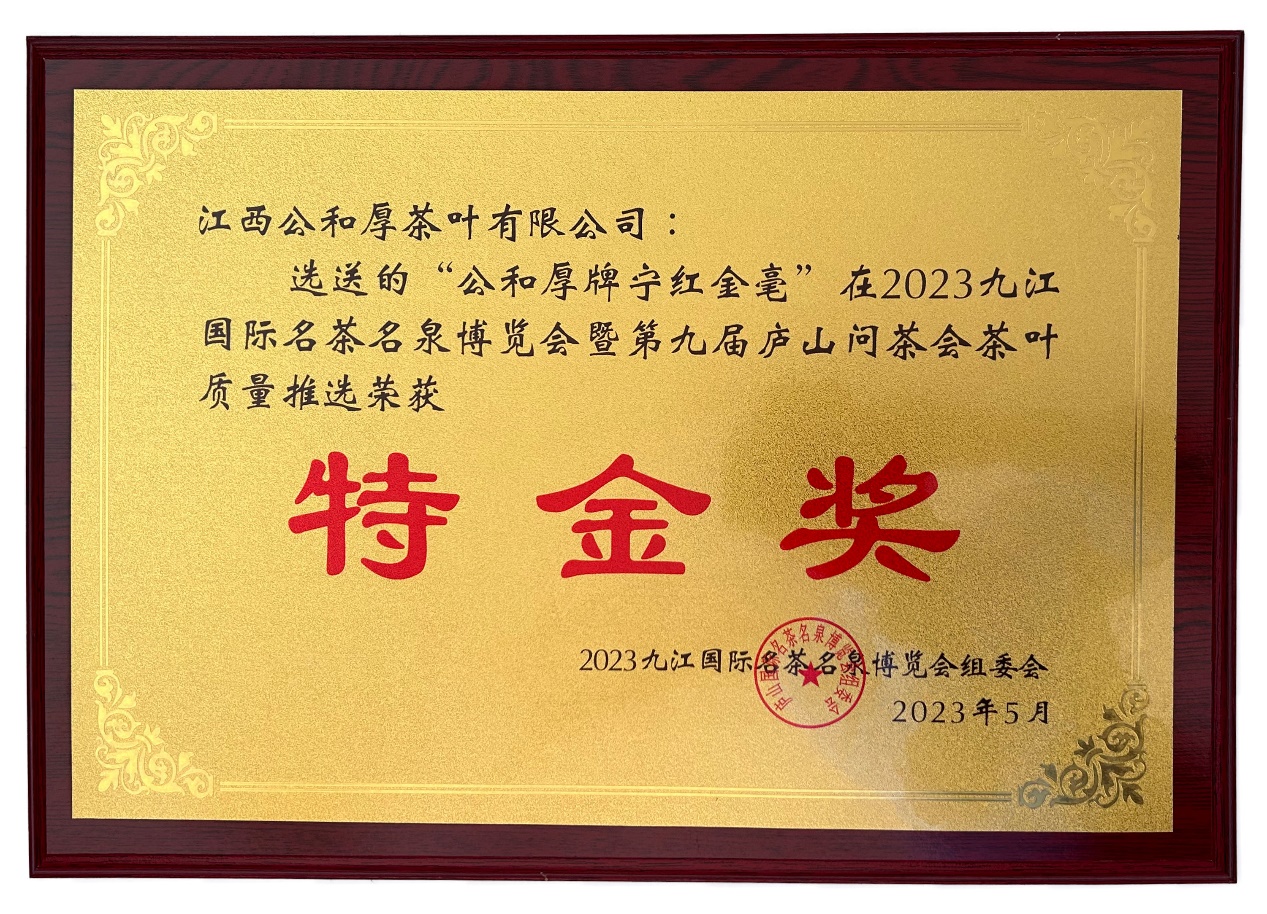 江西公和厚茶叶有限公司：
选送的“公和厚牌宁红金毫”在2023九江
国际名茶名泉博览会暨第九届庐山问茶会茶叶
质量推选荣获
特金奖
2023九江国际名茶名泉博览会组委会
庐山国际名茶名泉博览会组委会
2023年5月